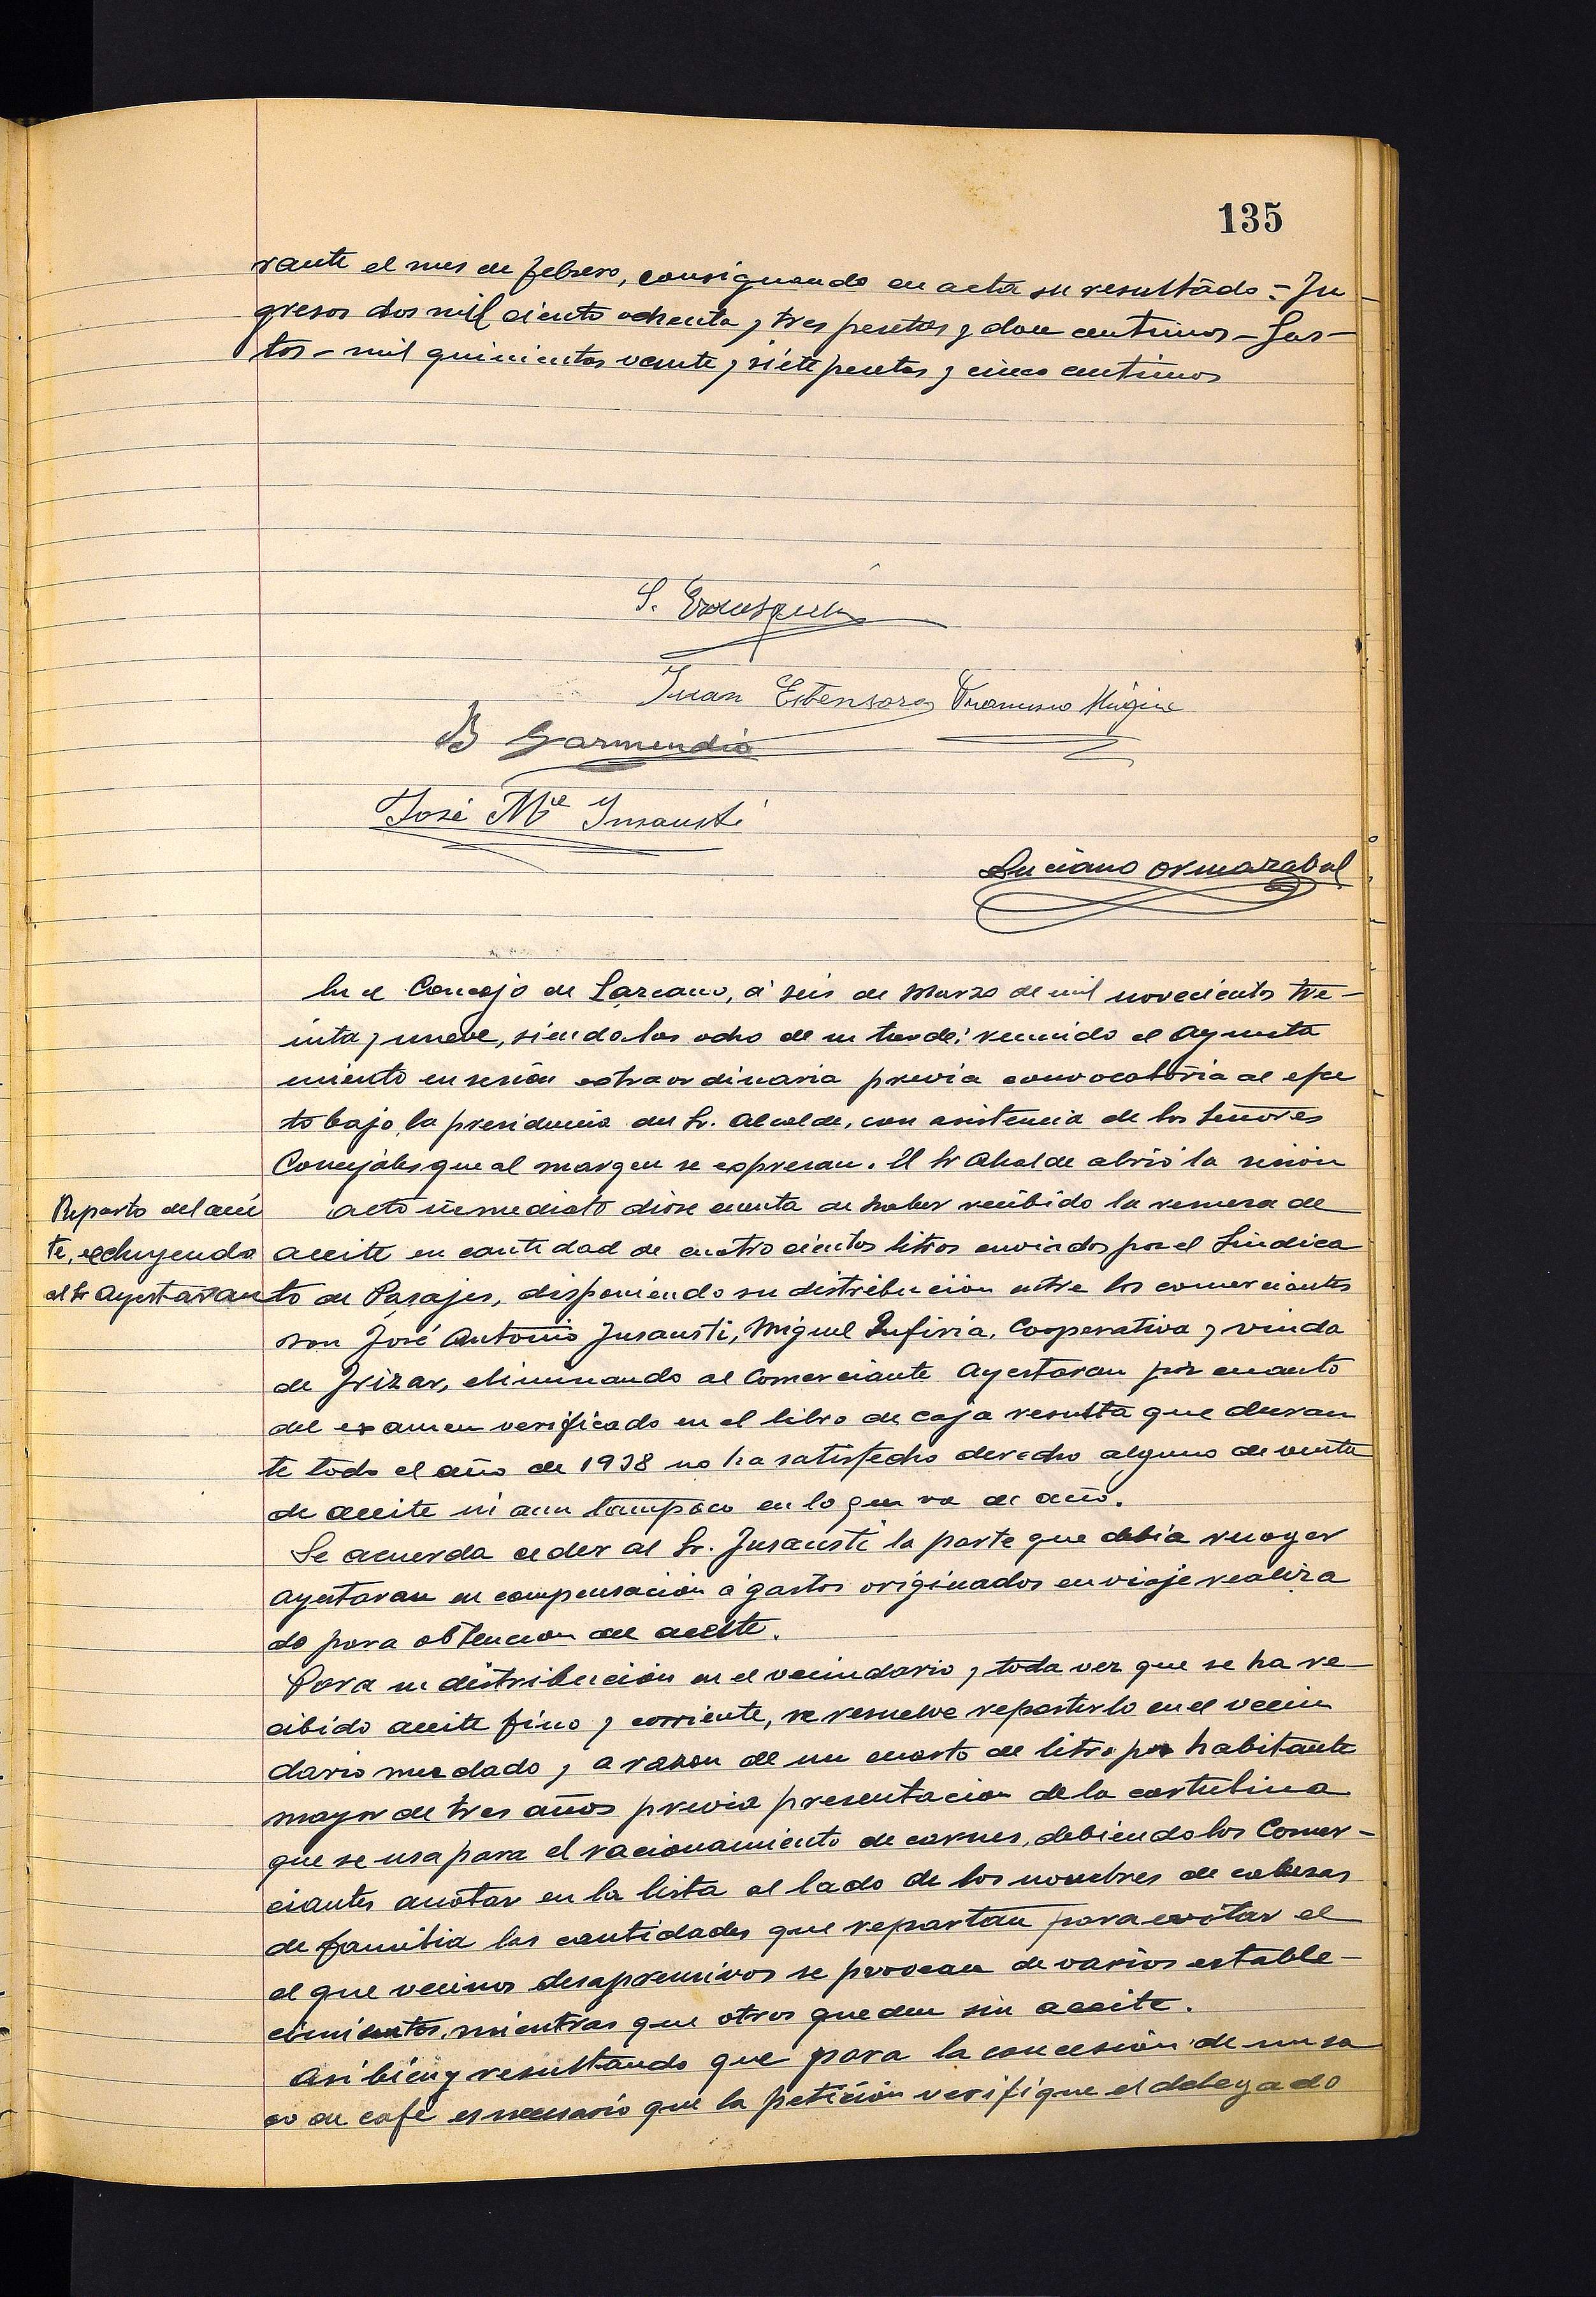 135
rante el mes de febrero, consignando en acta su resultado = In
gresos dos mil ciento ochenta y tres pesetas y doce centimos - Gas-
tos - mil quinientos veinte y siete pesetas y cinco centimos
S.
Juan Estensoro Francisco Múgica
B Garmendia
José Mª Insausti
Luciano Ormazabal
En el Concejo de Lazcano, á seis de Marzo de mil novecientos tre-
inta y nueve, siendo las ocho de su tarde; reunido el Ayunta
miento en sesión extraordinaria previa convocatoria al efec
to bajo la presidencia del Sr. Alcalde, con asistencia de los Señores
Concejales que al margen se expresan. El Sr Alcalde abrió la sesión
Reparto del acei
te, excluyendo
al Sr Ayestaran
acto inmediato diose cuenta de haber recibido la remesa de
aceite en cantidad de cuatrocientos litros enviados por el Sindica
to de Pasajes, disponiendo su distribución entre los comerciantes
son José Antonio Insausti, Miguel, Cooperativa y viuda
de Irizar, eliminando al Comerciante Ayestaran por cuanto
del examen verificado en el libro de caja resulta que duran
te todo el año de 1938 no ha satisfecho derecho alguno de venta
de aceite ni aun tampoco en lo que va de año.
Se acuerda ceder al Sr. Insausti la parte que debia recoger
Ayestaran en compensación á gastos originados en viaje realiza
do para obtencion del aceite.
Para su distribución en el vecindario y toda vez que se ha re-
cibido aceite fino y corriente, se resuelve repartirlo en el vecin
dario mezclado y a razon de un cuarto de litro por habitante
mayor de tres años previa presentacion de la cartulina
que se usa para el racionamiento de carnes, debiendo los Comer-
ciantes anotar en la lista al lado de los nombres de cabezas
de familia las cantidades que repartan para evitar el
el que vecinos desaprensivos se provean de varios estable-
cimientos, mientras que otros queden sin aceite.
Asi bien y resultando que para la concesión de un sa
co de café es necesario que la petición verifique el delegado